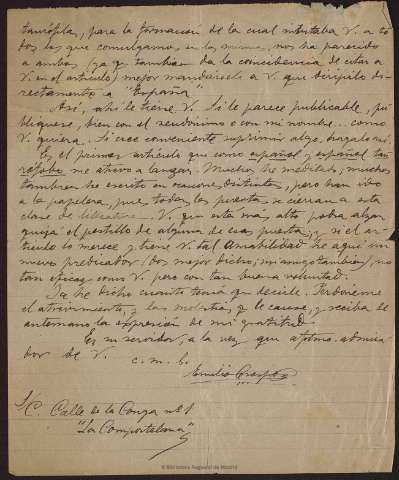 taurófila, para la formación de la cual intentaba V. a to
dos los que comulgamos en la misma, nos ha parecido
a ambos (ya que también da la coincidencia de citar a
V. en el artículo) mejor mandárselo a V. que dirigirlo di
rectamente a "España"
Así, ahí le tiene V. Si le parece publicable, pu
blíquese, bien con el seudónimo o con mi nombre... como
V. quiera. Si cree conveniente suprimir algo, hágalo así.
Es el primer artículo que como español y español tau
rófobo me atrevo a lanzar. Muchos he meditado; muchos
también he escrito en ocasiones distintas, pero han ido
a la papelera, pues todas las puertas se cierran a esta
clase de literatura. V. que está más alto podrá alzar
quizá el pestillo de alguna de esas puertas, y si el ar
tículo lo merece y tiene V. tal amabilidad he aquí un
nuevo predicador (o mejor dicho; mi amigo también), no
tan eficaz como V. pero con tan buena voluntad.
Ya he dicho cuanto tenía que decirle. Perdóneme
el atrevimiento, y las molestias que le cause, y reciba de
antemano la expresión de mi gratitud.
Es su servidor, a la vez que admi
rador de V. c. m. b.
Emilio
S/C. Calle de la Conga nº 1
"La Compostelana"
© Biblioteca Regional de Madrid